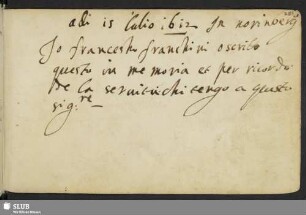 adi 15 Iulio 1612 In norinberg
Io francesco franchini o scrito
questo in memoria et per ricordo
de la servitu chi tengo a questo
sig.re
SLUB